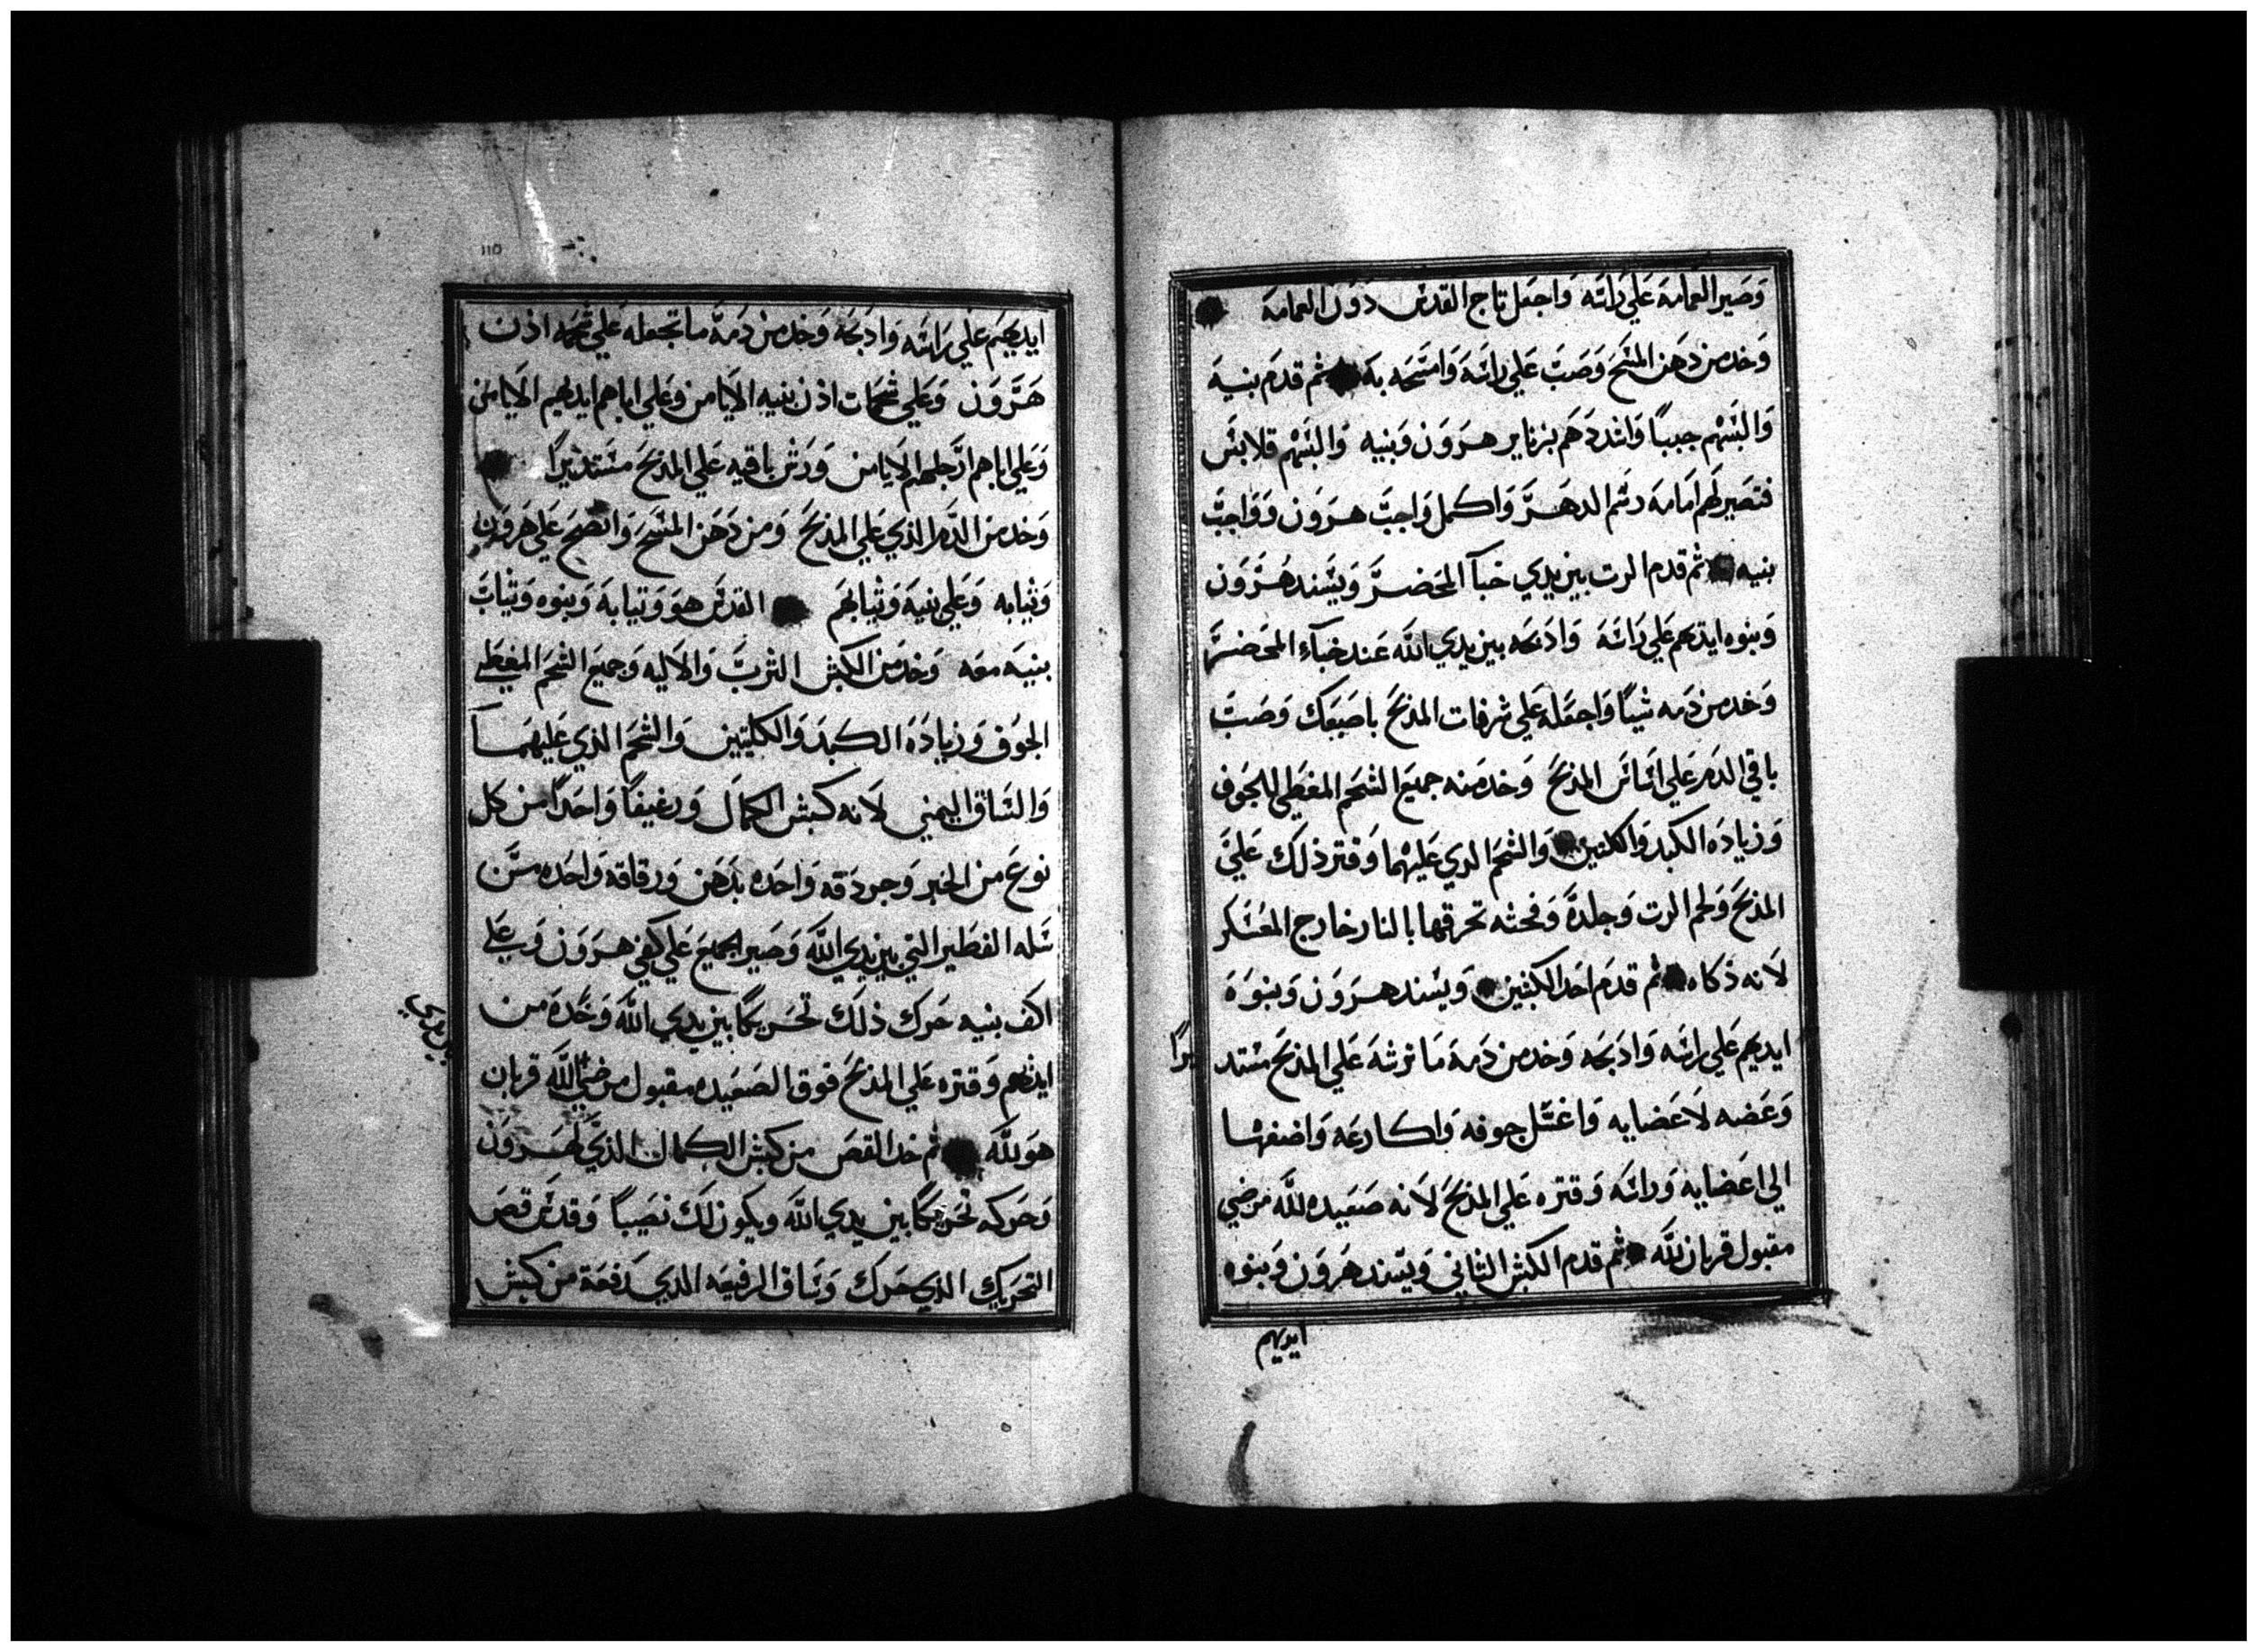 وصير العمامه علي راسه واجعل تاج القدس دون العمامه
وخد من دهن المسح وصب علي راسه وامسحه به ثم قدم بنيه
والبسهم جببا واشددهم بزنانير هرون وبنيه والبسهم قلانس
فتصير لهم امامه رسم الدهر واكمل واجب هرون وواجب
بنيه ثم قدم الرت بين يدي خبآ المحضر ويسند هرون
وبنوه ايديهم علي راسه وادبحه بين يدي الله عند خبآء المحضر
وخد من دمه شيا واجعله علي شرفات المدبح باصبعك وصب
باقي الدم علي اساس المدبح وخد منه جميع الشحم المغطي للجوف
وزياده الكبد والكلتين والشحم الدي عليهما وقتر ذلك علي
المدبح ولحم الرت وجلده وفحثه تحرقها بالنار خارج المعسكر
لانه ذكاه ثم قدم احد الكبشين ويسند هرون وبنوه
ايديهم علي راسه وادبحه وخد من دمه ما ترشه علي المدبح مستد
يرا
وعضه لاعضايه واغسل جوفه واكارعه واضفها
الي اعضايه وراسه وقتره علي المدبح لانه صعيده لله مرضي
مقبول قربان لله ثم قدم الكبش الثاني ويسند هرون وبنوه
ايديهم
110
ايديهم علي راسه وادبحه وخد من دمه ما تجعله علي شحمه اذن
هرون وعلي شحمات اذن بنيه الايامن وعلي اباهم ايديهم الايامن
وعلي اباهم ارجلهم الايامن ورش باقيه علي المدبح مستديرا
وخد من الدم الذي علي المذبح ومن دهن المسح وانضح علي هرون
وثيابه وعلي بنيه وثيابهم القدس هو وثيابه وبنوه وثياب
بنيه معه وخد من الكبش الثرب والاليه وجميع الشحم المغطي
الجوف وزياده الكبد والكليتين والشحم الذي عليهما
والساق اليمني لانه كبش الكمال ورغيفا واحدا من كل
نوع من الخبز وجردقه واحده بدهن ورقاقه واحده من
سله الفطير التي بين يدي الله وصير الجميع علي كفي هرون وعلي
اكف بنيه حرك ذلك تحريكا بين يدي الله وخده من
ايديهم وقتره علي المدبح فوق الصعيده مقبول مرضي لله قربان
بين يدي
هو لله ثم خد القص من كبش الكمال الذي لهرون
وحركه تحريكا بين يدي الله ويكون لك نصيبا وقدس قص
التحريك الدي حرك وساق الرفيعه الدي رفعه من كبش